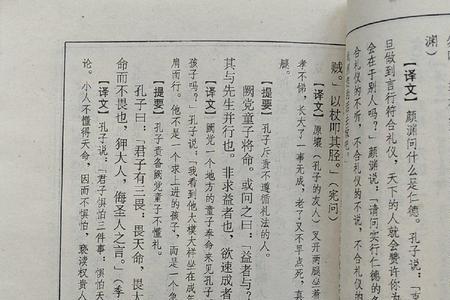 渊）
【译文】 颜渊问什么是仁德。孔子说：“
旦做到言行符合礼仪，天下的人就会赞许你为
会在于别人吗？”颜渊说：“请问实行仁德的
合礼仪的不听，不合礼仪的不说，不合礼仪的
贼。”以杖叩其胫。（宪问）
【译文】 原壤（孔子的友人）叉开两腿坐着
孝不悌，长大了一事无成，老了又不早点死，真
腿。
【提要】 孔子斥责不遵循礼法的人。
阙党童子将命。或问之曰：“益者与？”
其与先生并行也。非求益者也，欲速成者
【译文】 阙党一个地方的童子奉命来见孔子
孩子吗？”孔子说：“我看到他大模大样坐在成年
肩而行。他不是一个求上进的孩子，而是一个急
【提要】 孔子责备阙党童子不懂礼。
孔子曰：“君子有三畏：畏天命，畏大
命而不畏也，狎大人，侮圣人之言。”（季
【译文】 孔子说：“君子惧怕三件事：惧怕天
论。小人不懂得天命，因而不惧怕，亵渎权贵人